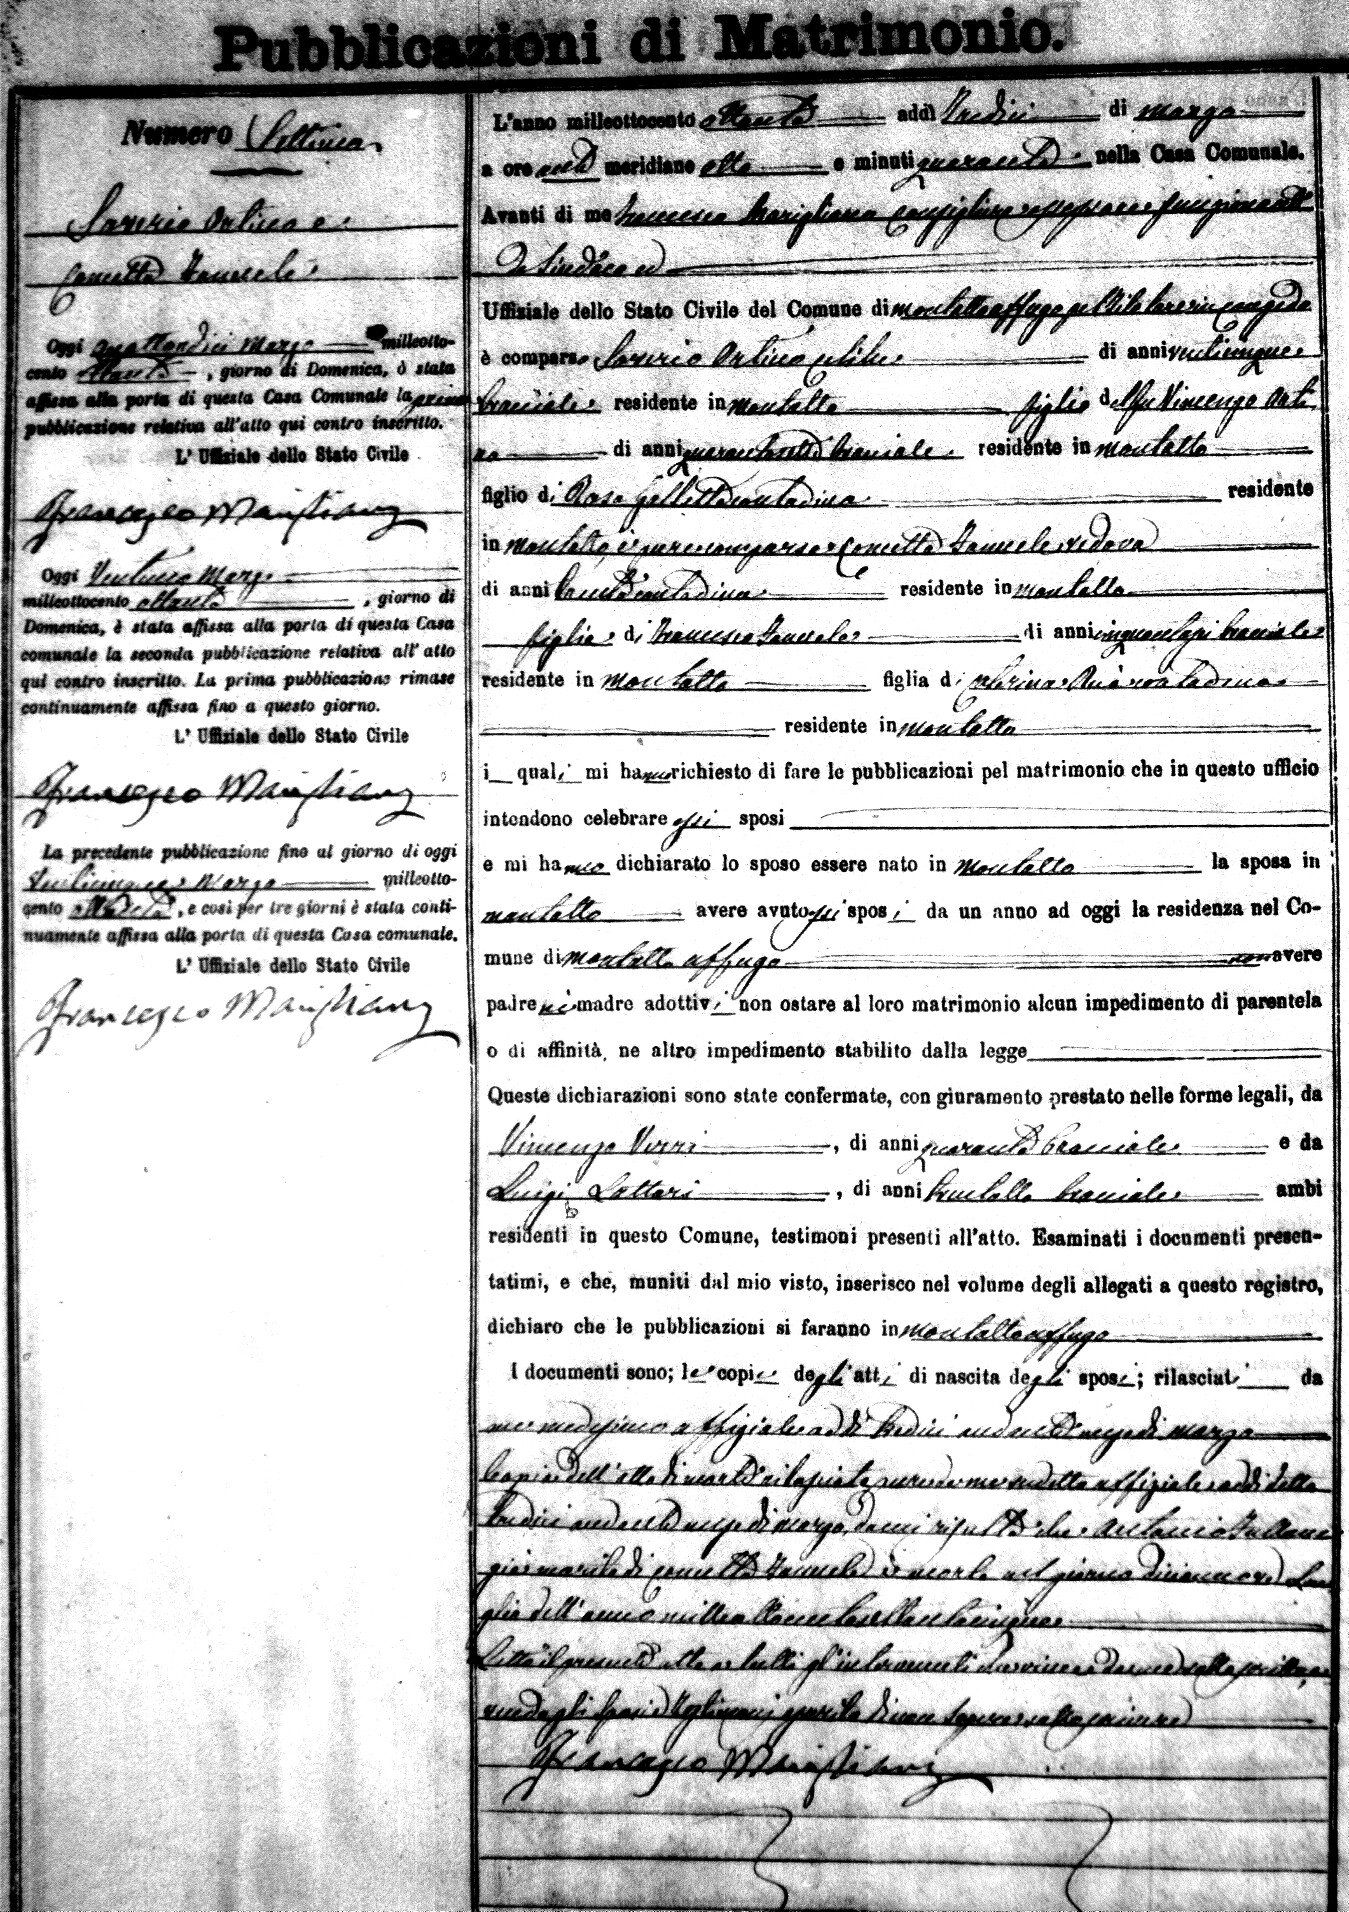 Pubblicazioni di Matrimonio.
Numero Settima
Saverio Ortino e
Concetta
Oggi quattordici Marzo milleotto-
cento ottanta, giorno di Domenica, è stata
affissa alla porta di questa Casa Comunale la prima
pubblicazione relativa all'atto qui contro inscritto.
L' Uffiziale dello Stato Civile
Francesco
Oggi Ventuno Marzo
milleottocento ottanta, giorno di
Domenica, è stata affissa alla porta di questa Casa
comunale la seconda pubblicazione relativa all' atto
qui contro inscritto. La prima pubblicazione rimase
continuamente affissa fino a questo giorno.
L' Uffiziale dello Stato Civile
Francesco
La precedente pubblicazione fino al giorno di oggi
Venticinque Marzo milleotto-
cento ottanta, e così per tre giorni è stata conti-
nuamente affissa alla porta di questa Casa comunale.
L' Uffiziale dello Stato Civile
Francesco
L'anno milleottocento ottanta addì tredici di marzo
a ore anti meridiane otto e minuti quaranta nella Casa Comunale.
Avanti di me Francesco Consigliere assessore funzionante
Da Sindaco ed
Uffiziale dello Stato Civile del Comune di montalto uffugo
è comparso Saverio Ortino celibe di anni venticinque
bracciale residente in montalto figlio del fu Vincenzo Orti
no di anni quarantasette bracciale residente in montalto
figlio di Rosa contadina residente
in montalto, è pure comparsa Concetta vedova
di anni trenta contadina residente in montalto
figlia di Francesco di anni cinquantasei bracciale
residente in montalto figlia di contadina
residente in montalto
i quali mi hanno richiesto di fare le pubblicazioni pel matrimonio che in questo ufficio
intendono celebrare essi sposi
e mi hanno dichiarato lo sposo essere nato in montalto la sposa in
montalto avere avuto essi sposi da un anno ad oggi la residenza nel Co-
mune di montalto uffugo non avere
padre nè madre adottivi non ostare al loro matrimonio alcun impedimento di parentela
o di affinità, ne altro impedimento stabilito dalla legge
Queste dichiarazioni sono state confermate, con giuramento prestato nelle forme legali, da
Vincenzo, di anni quaranta bracciale e da
Luigi Lattari, di anni trentotto bracciale ambi
residenti in questo Comune, testimoni presenti all'atto. Esaminati i documenti presen-
tatimi, e che, muniti dal mio visto, inserisco nel volume degli allegati a questo registro,
dichiaro che le pubblicazioni si faranno in montalto uffugo
I documenti sono; le copie degli atti di nascita degli sposi; rilasciati da
me medesimo uffiziale addì tredici andante mese di marzo
la copia dell'atto di morte rilasciata pure da me sudetto uffiziale addì detto
tredici andante mese di marzo, da cui risulta che Antonio
già marito di Concetta è morto nel giorno diciannove Lu
glio dell'anno milleottocentosettantacinque
Letto il presente atto a tutti gl'intervenuti
Francesco